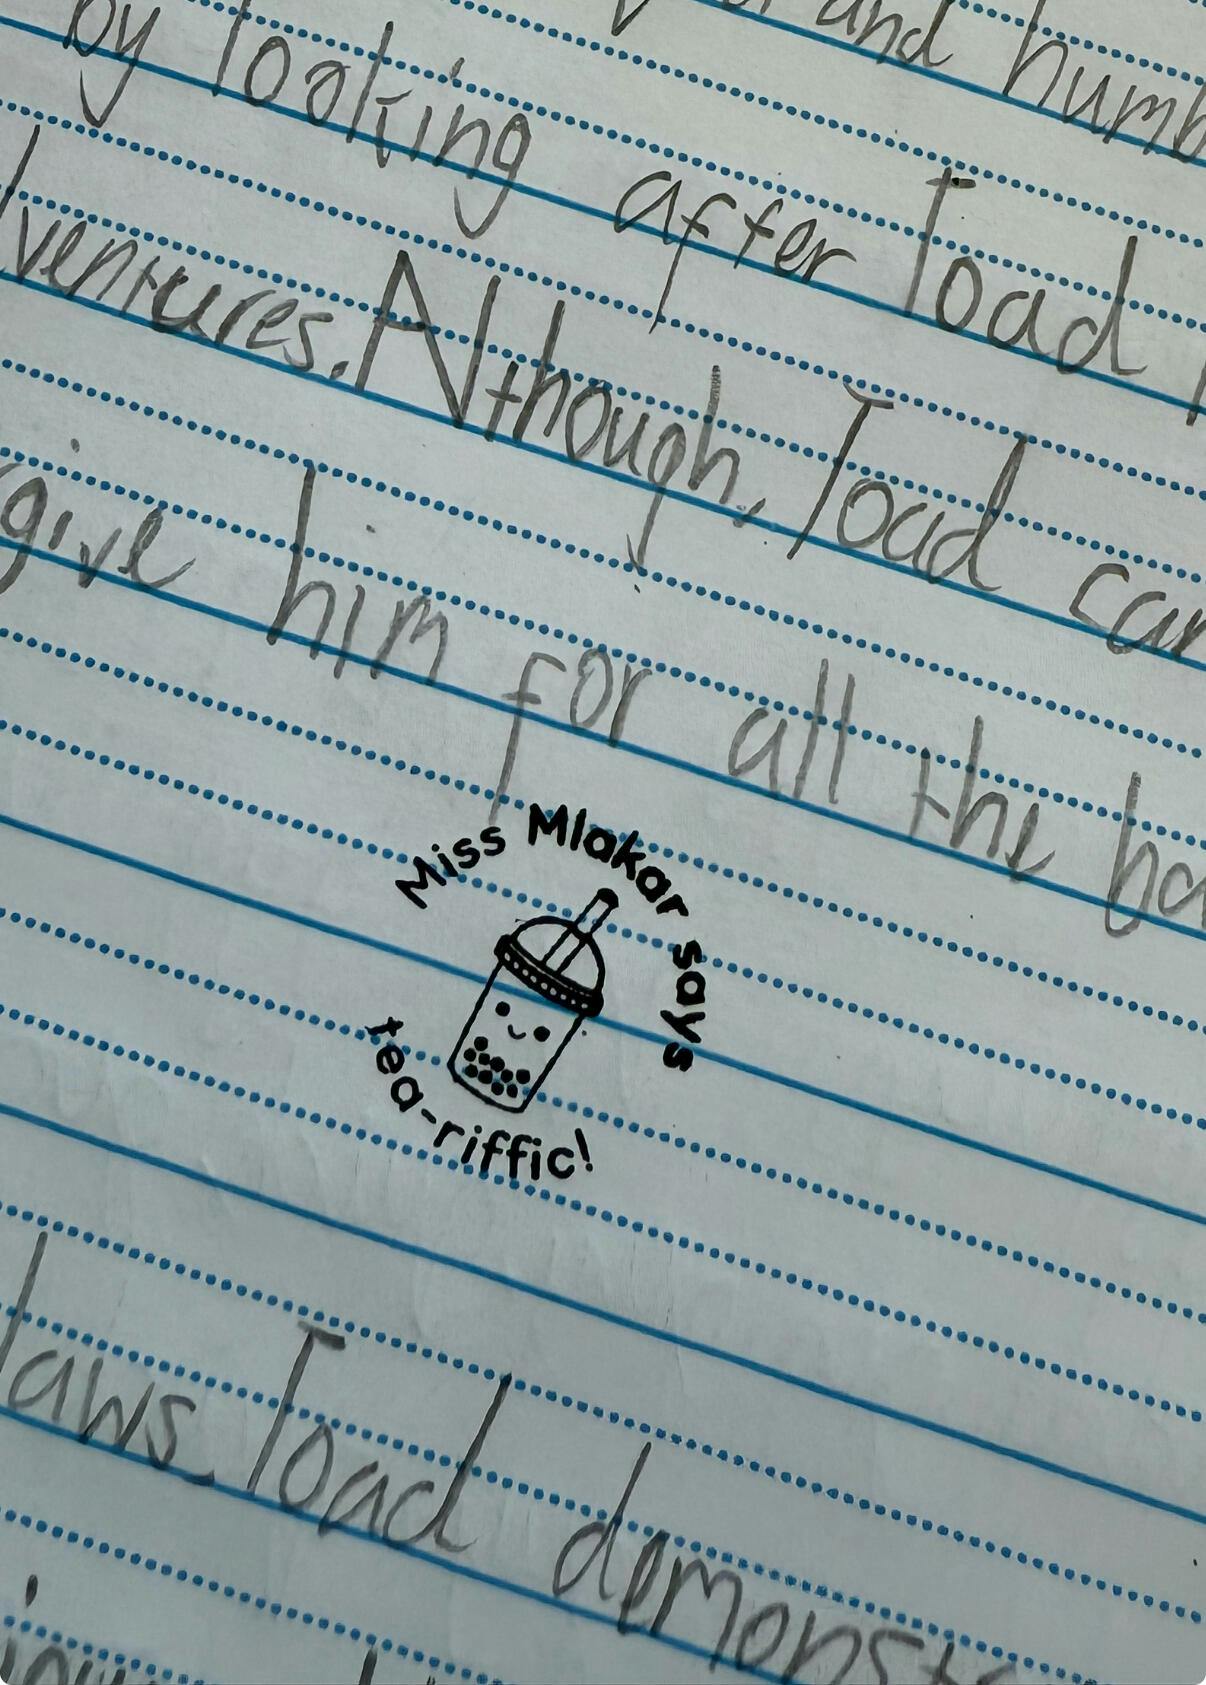 and
by looking after Toad
ventures. Although, Toad
give him for all the
Miss Mlakar says
tea-riffic!
laws. Toad